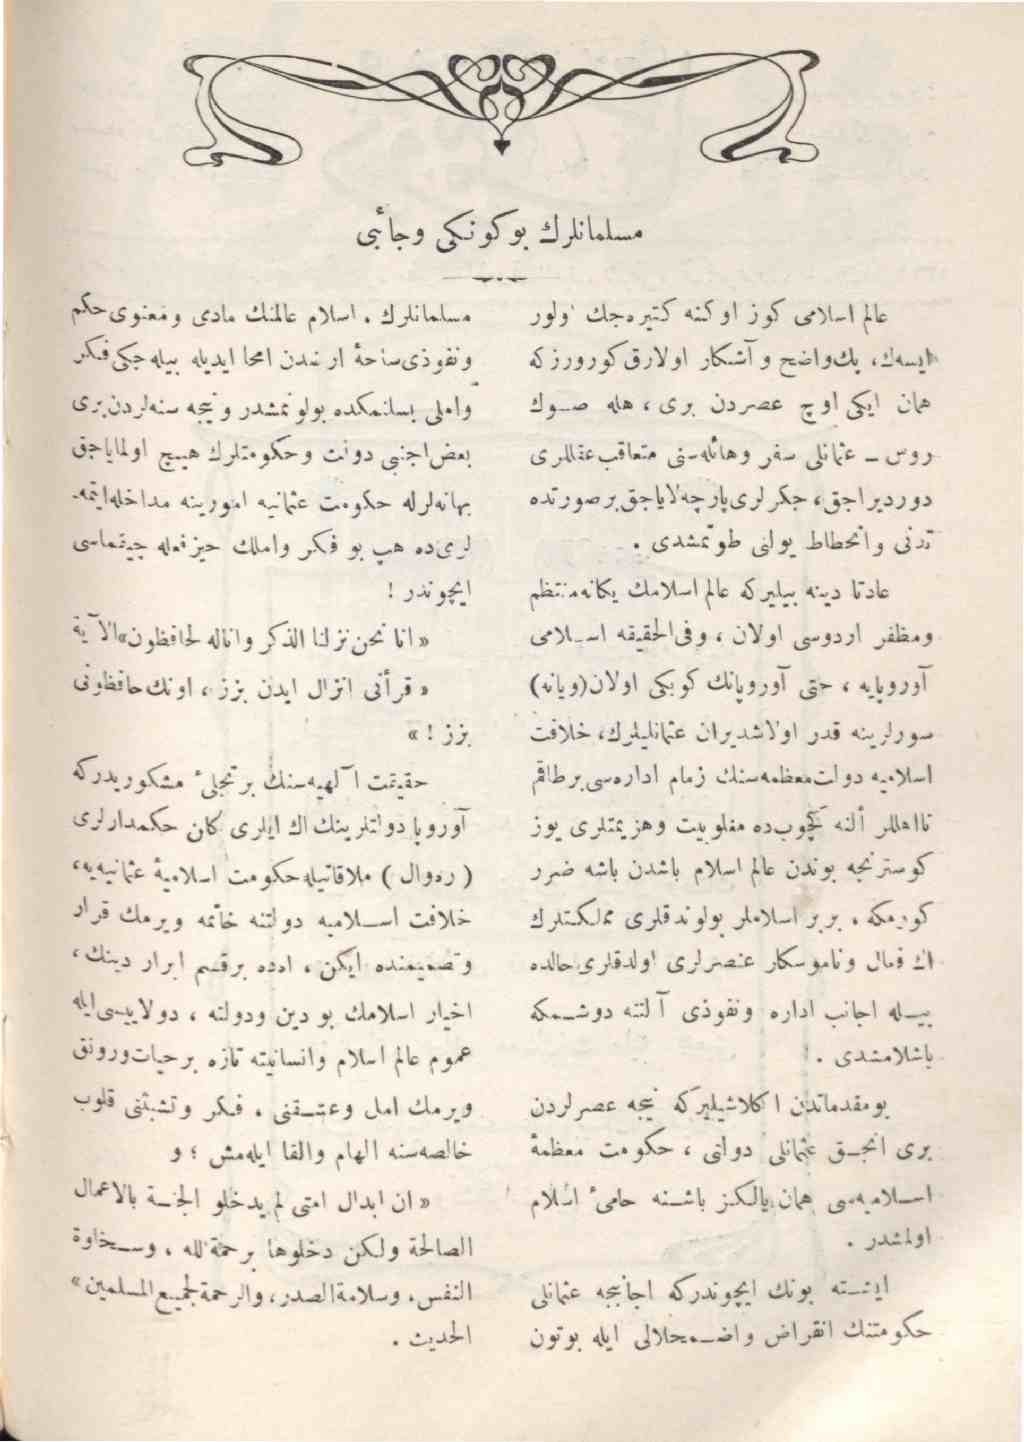 مسلمانلرك بوكونكی وجائبی
عالم اسلامی كوز اوكنه كتیره‌جك اولور
ایسه‌ك، پك واضح و آشكار اولارق كورورزكه
همان ایكی اوچ عصردن بری ، هله صوك
روس ــ عثمانلی سفر وهائله‌سنی متعاقب عقللری
دوردیراجق، جكرلری پارچه‌لایاجق برصورتده
تدنی وانحطاط یولنی طوتمشدی .
عادتا دینه بیلیركه عالم اسلامك یكانه منتظم
ومظفر اردوسی اولان ، وفی الحقیقه اسلامی
آوروپایه ، حتی آوروپانك كوبكی اولان (ویانه)
سورلرینه قدر اولاشدیران عثمانلیلرك، خلافت
اسلامیه دولت معظمه‌سنك زمام اداره‌سی برطاقم
نااهللر ألنه كچوب‌ده مغلوبیت وهزیمتلری یوز
كوسترنجه بوندن عالم اسلام باشدن باشه ضرر
كورمكه ، بربر اسلاملر بولوندقلری مملكتلرك
اك فعال وناموسكار عنصرلری اولدقلری حالده
بیله اجانب اداره ونفوذی آلتنه دوشمكه
باشلامشدی .
بومقدماتدن اكلاشیلیركه نیجه عصرلردن
بری انجق عثمانلی دولتی ، حكومت معظمهٔ
اسلامیه‌سی همان یالكز باشنه حامیٔ اسلام
اولمشدر .
ایشته بونك ایچوندركه اجانبجه عثمانلی
حكومتنك انقراض واضمحلالی ایله بوتون
مسلمانلرك ، اسلام عالمنك مادی ومعنوی حكم
ونفوذی ساحهٔ ارضدن امحا ایدیله بیله‌جكی فكر
واملی بسلنمكده بولونمشدر ونیجه سنه‌لردن بری
بعض اجنبی دولت وحكومتلرك هیچ اولمایاجق
بهانه‌لرله حكومت عثمانیه امورینه مداخله ایتمه‌
لری‌ده هپ بو فكر واملك حیزفعله چیقماسی
ایچوندر !
« انا نحن نزلنا الذكر واناله لحافظون» الآیة
« قرأنی انزال ایدن بزز ، اونك حافظونی
بزز ! »
حقیقت آلهیه‌سنك بر تجلیٔ مشكوریدركه
آوروپا دولتلرینك اك ایلری كلن حكمدارلری
( ره‌وال ) ملاقاتیله حكومت اسلامیهٔ عثمانیه‌یه،
خلافت اسلامیه دولتنه خاتمه ویرمك قرار
وتصمیمنده ایكن ، اوده برقسم ابرار دینك ،
اخیار اسلامك بو دین ودولته ، دولاییسی ایله
عموم عالم اسلام وانسانیته تازه برحیات ورونق
ویرمك امل وعشقنی ، فكر وتشبثنی قلوب
خالصه‌سنه الهام والقا ایله‌مش ؛ و
« ان ابدال امتی لم یدخلو الجنة بالاعمال
الصالحة ولكن دخلوها برحمة الله ، وسخاوة
النفس، وسلامة الصدر، والرحمة لجمیع المسلمین »
الحدیث .